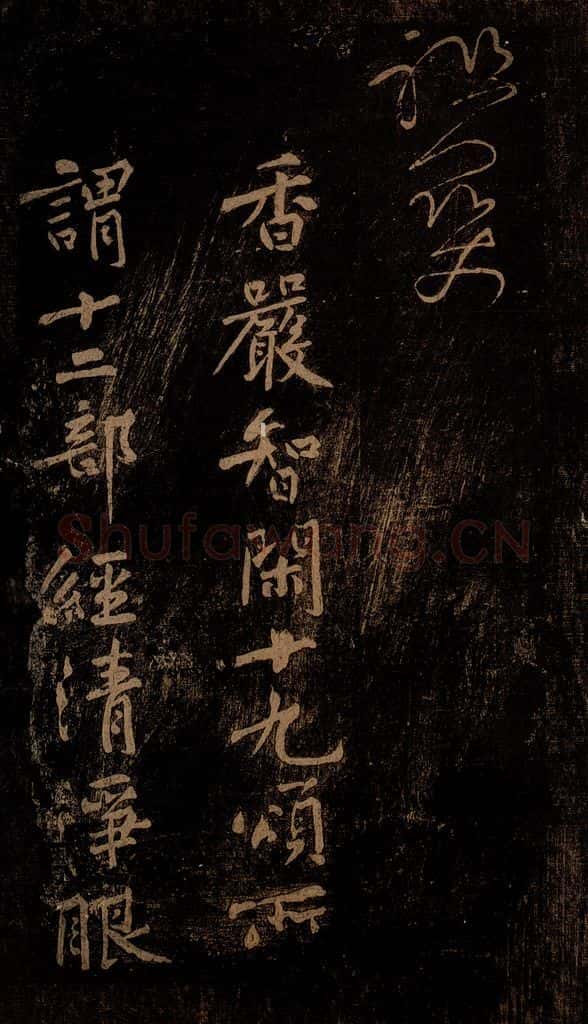 香嚴智閑十九頌所
謂十二部經清淨眼
Shufawang.CN